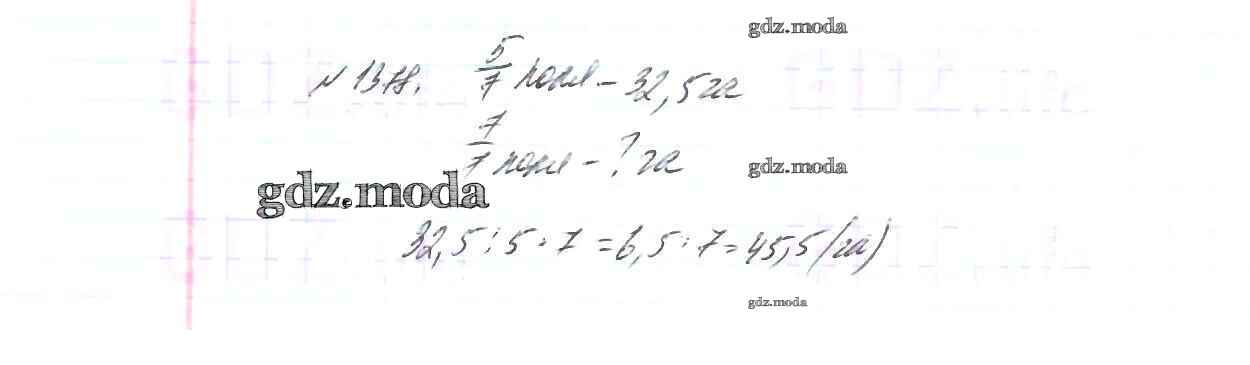 gdz.moda
№ 1378. 5/7 поля - 32,5 га
7/7 поля - ? га
gdz.moda
gdz.moda
32,5 : 5 · 7 = 6,5 · 7 = 45,5 (га)
gdz.moda